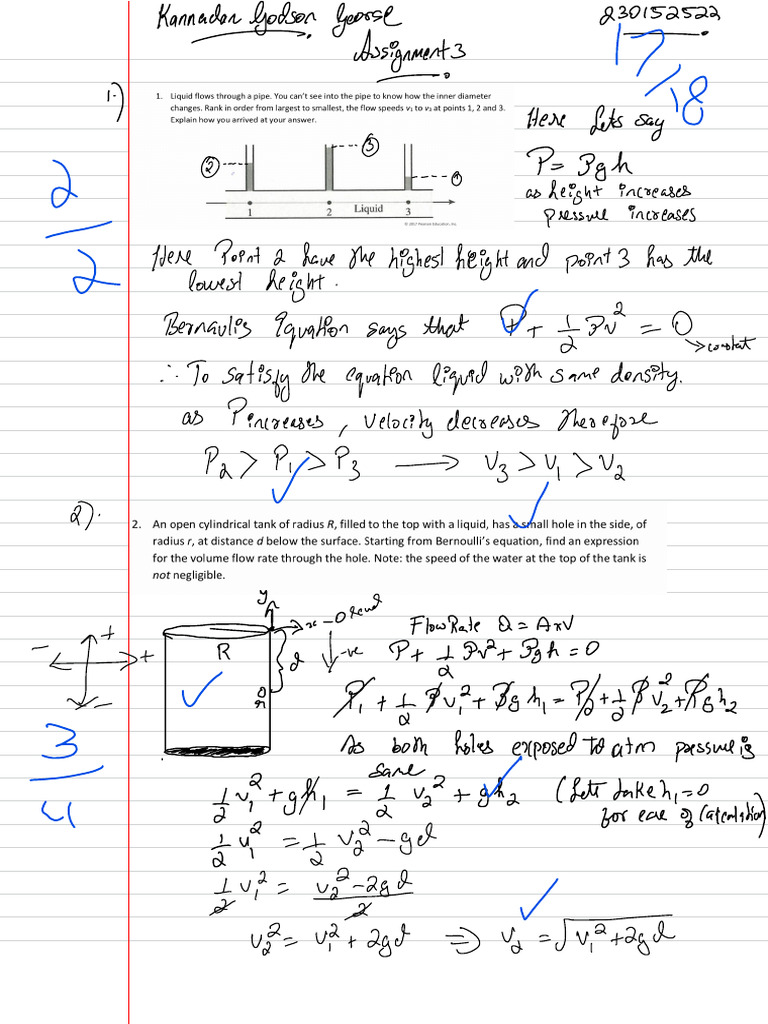 Kannadan Godson George
230152522
Assignment 3
17/18
1)
1. Liquid flows through a pipe. You can't see into the pipe to know how the inner diameter
changes. Rank in order from largest to smallest, the flow speeds v₁ to v₃ at points 1, 2 and 3.
Explain how you arrived at your answer.
② ③ ①
1 2 Liquid 3
© 2017 Pearson Education, Inc.
Here lets say
P = ρgh
as height increases
pressure increases
2/2
Here Point 2 have the highest height and point 3 has the
lowest height.
Bernaulis Equation says that P + 1/2 ρv² = 0
→ constat
∴ To satisfy the equation liquid with same density.
as P increases, velocity decreases therefore
P₂ > P₁ > P₃ ⟶ v₃ > v₁ > v₂
2).
2. An open cylindrical tank of radius R, filled to the top with a liquid, has a small hole in the side, of
radius r, at distance d below the surface. Starting from Bernoulli's equation, find an expression
for the volume flow rate through the hole. Note: the speed of the water at the top of the tank is
not negligible.
y
x
R
d
r
- + + -
-ve
Flow Rate Q = A×V
P + 1/2 ρv² + ρgh = 0
P₁ + 1/2 ρv₁² + ρgh₁ = P₂ + 1/2 ρv₂² + ρgh₂
3/4
As both holes exposed to atm pressure is
same
1/2 v₁² + gh₁ = 1/2 v₂² + gh₂ (Lets take h₁ = 0
for eae of Calculation)
1/2 v₁² = 1/2 v₂² - gd
1/2 v₁² = v₂² - 2gd / 2
v₂² = v₁² + 2gd ⇒ v₂ = √v₁² + 2gd